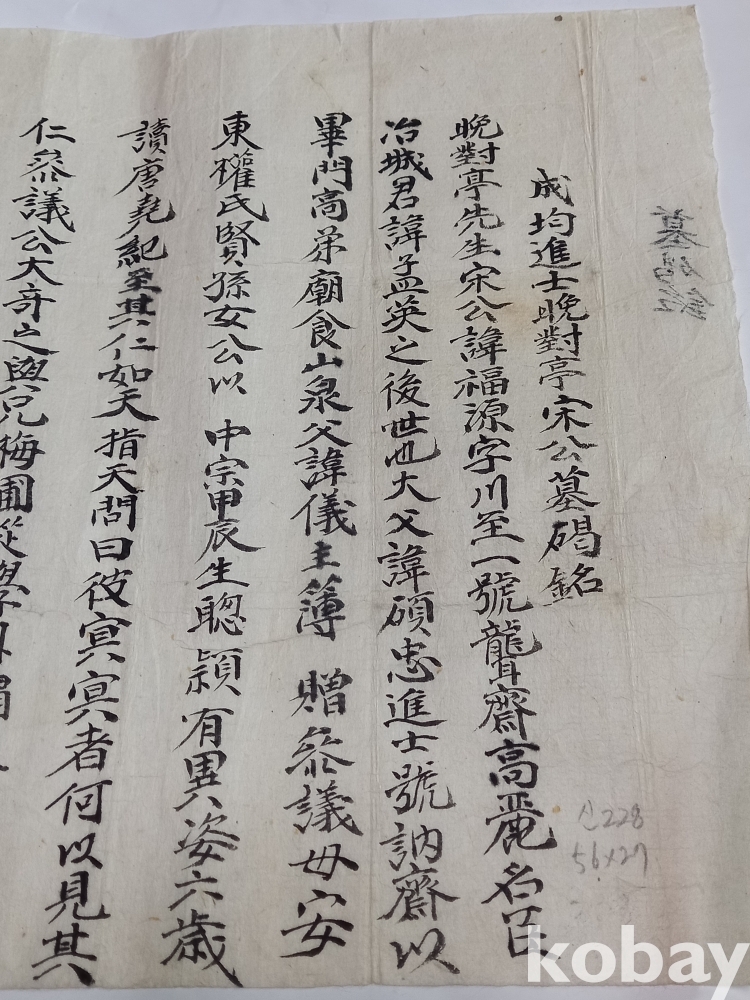 墓碣銘
成均進士晩對亭宋公墓碣銘
晩對亭先生宋公諱福源字川至一號聾齋高麗名臣
冶城君諱孟英之後世也大父諱碩忠進士號訥齋以
畢門高弟廟食山泉父諱儀主簿 贈叅議母安
東權氏賢孫女公以 中宗甲辰生聦穎有異姿六歲
讀唐堯紀至其仁如天指天問曰彼冥冥者何以見其
仁叅議公大奇之與
梅圃
신228
56x27
kobay